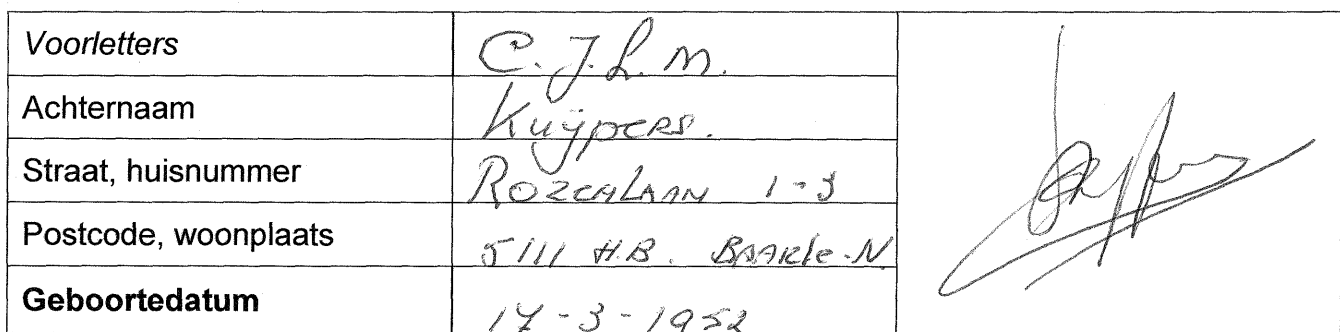 Voorletters C.J.L.M.
Achternaam Kuÿpers.
Straat, huisnummer Rozenlaan 1-3
Postcode, woonplaats 5111 H.B. Baarle-N
Geboortedatum 17-3-1952